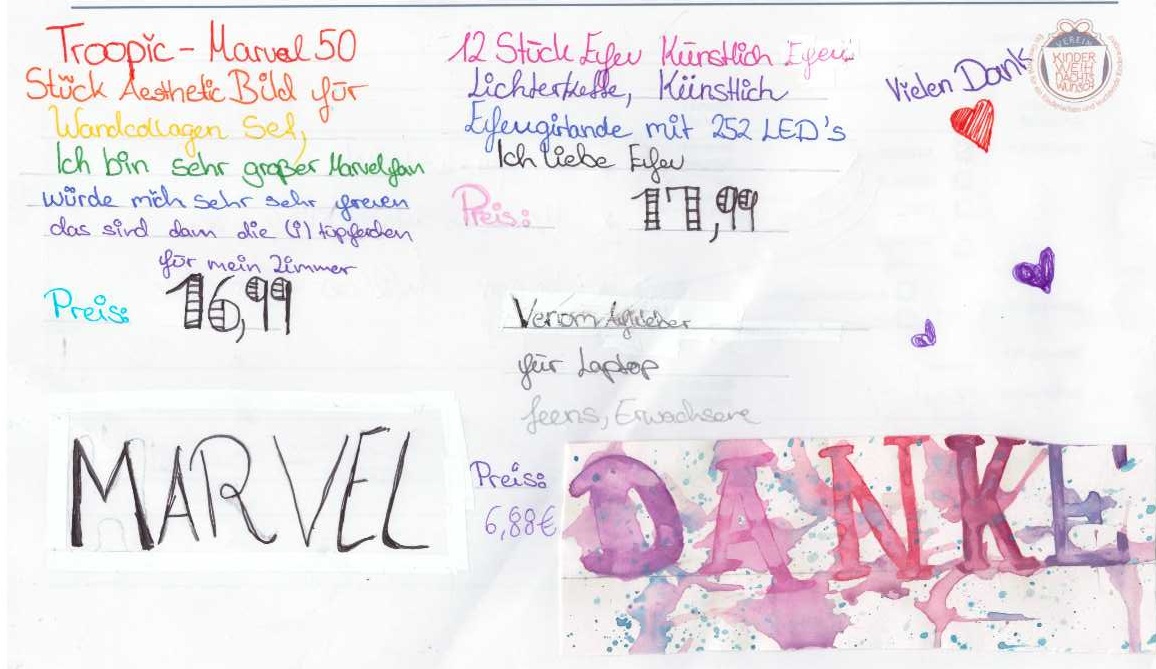 Troopic - Marvel 50
Stück Aesthetic Bild für
Wandcollagen Set,
Ich bin sehr großer Marvelfan
würde mich sehr sehr freuen
das sind dann die (i) tüpfelchen
für mein Zimmer
Preis: 16,99
MARVEL
12 Stück Efeu Künstlich Efeu
Lichterkette, Künstlich
Efeugirlande mit 252 LED's
Ich liebe Efeu
Preis: 17,99
Venom Aufkleber
für Laptop
Teens, Erwachsene
Preis:
6,88€
DANKE
Vielen Dank
VEREIN
KINDER
WEIH
NACHTS
WUNSCH